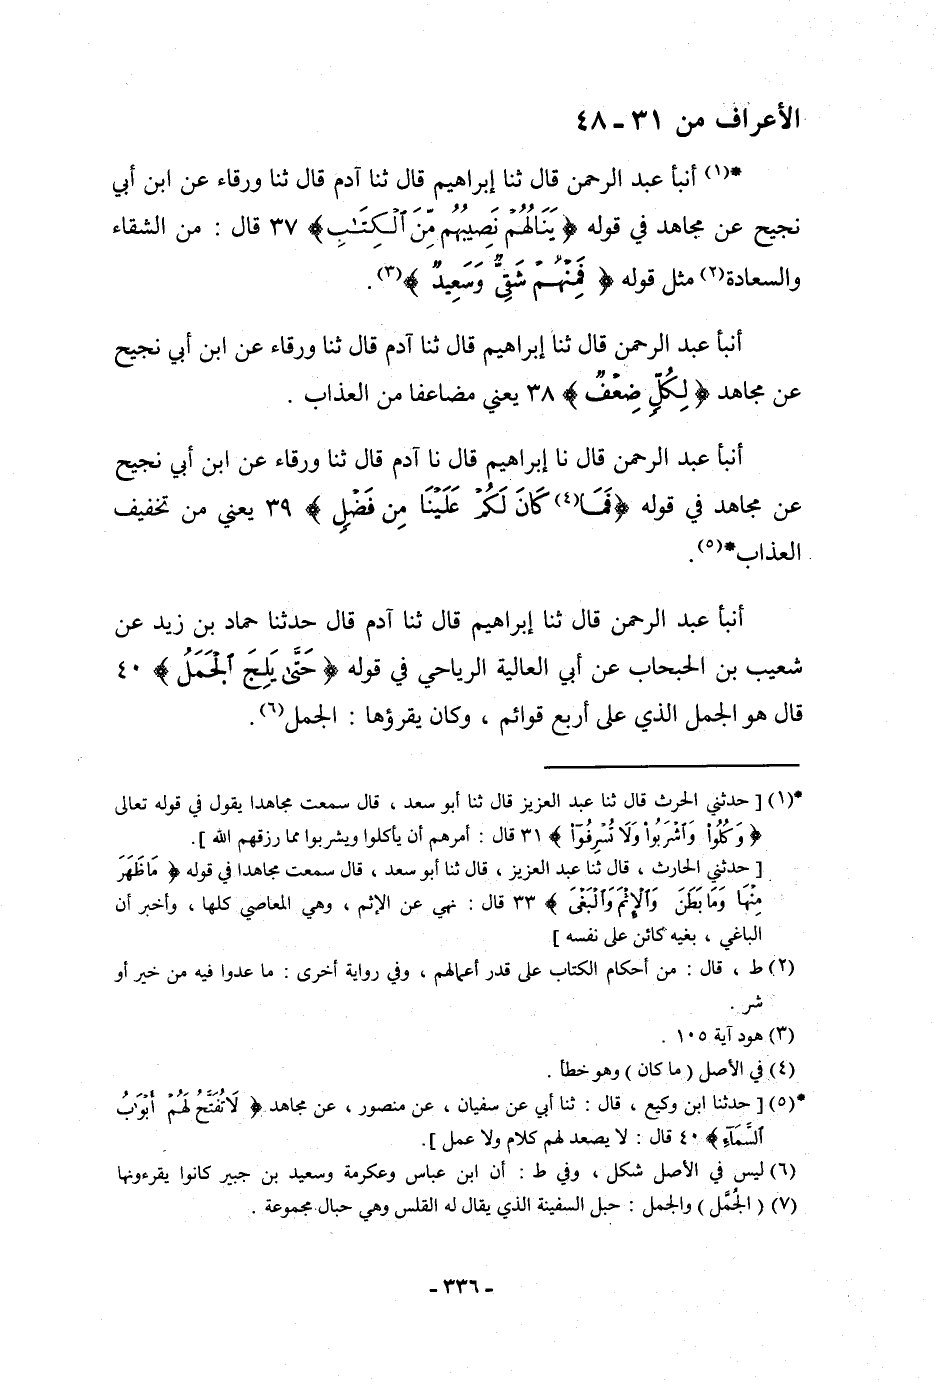 الأعراف من ٣١ ـ ٤٨
*(١) أنبأ عبد الرحمن قال ثنا إبراهيم قال ثنا آدم قال ثنا ورقاء عن ابن أبي
نجيح عن مجاهد في قوله ﴿ يَنَالُهُمْ نَصِيبُهُم مِّنَ ٱلْكِتَٰبِ ﴾ ٣٧ قال : من الشقاء
والسعادة(٢) مثل قوله ﴿ فَمِنْهُمْ شَقِىٌّ وَسَعِيدٌ ﴾(٣).
أنبأ عبد الرحمن قال ثنا إبراهيم قال ثنا آدم قال ثنا ورقاء عن ابن أبي نجيح
عن مجاهد ﴿ لِكُلٍّ ضِعْفٌ ﴾ ٣٨ يعني مضاعفا من العذاب .
أنبأ عبد الرحمن قال نا إبراهيم قال نا آدم قال ثنا ورقاء عن ابن أبي نجيح
عن مجاهد في قوله ﴿فَمَا(٤) كَانَ لَكُمْ عَلَيْنَا مِن فَضْلٍ ﴾ ٣٩ يعني من تخفيف
العذاب*(٥).
أنبأ عبد الرحمن قال ثنا إبراهيم قال ثنا آدم قال حدثنا حماد بن زيد عن
شعيب بن الحبحاب عن أبي العالية الرياحي في قوله ﴿ حَتَّىٰ يَلِجَ ٱلْجَمَلُ ﴾ ٤٠
قال هو الجمل الذي على أربع قوائم ، وكان يقرؤها : الجمل(٦).
*(١) [ حدثني الحرث قال ثنا عبد العزيز قال ثنا أبو سعد ، قال سمعت مجاهدا يقول في قوله تعالى
﴿ وَكُلُوا۟ وَٱشْرَبُوا۟ وَلَا تُسْرِفُوٓا۟ ﴾ ٣١ قال : أمرهم أن يأكلوا ويشربوا مما رزقهم الله ].
[ حدثني الحارث ، قال ثنا عبد العزيز ، قال ثنا أبو سعد ، قال سمعت مجاهدا في قوله ﴿ مَا ظَهَرَ
مِنْهَا وَمَا بَطَنَ وَٱلْإِثْمَ وَٱلْبَغْىَ ﴾ ٣٣ قال : نهي عن الإثم ، وهي المعاصي كلها ، وأخبر أن
الباغي ، بغيه كائن على نفسه ]
(٢) ط ، قال : من أحكام الكتاب على قدر أعمالهم ، وفي رواية أخرى : ما عدوا فيه من خير أو
شر .
(٣) هود آية ١٠٥ .
(٤) في الأصل ( ما كان ) وهو خطأ .
*(٥) [ حدثنا ابن وكيع ، قال : ثنا أبي عن سفيان ، عن منصور ، عن مجاهد ﴿ لَا تُفَتَّحُ لَهُمْ أَبْوَٰبُ
ٱلسَّمَآءِ ﴾ ٤٠ قال : لا يصعد لهم كلام ولا عمل ].
(٦) ليس في الأصل شكل ، وفي ط : أن ابن عباس وعكرمة وسعيد بن جبير كانوا يقرءونها
(٧) ( الجُمَّل ) والجمل : حبل السفينة الذي يقال له القلس وهي حبال مجموعة .
- ٣٣٦ -